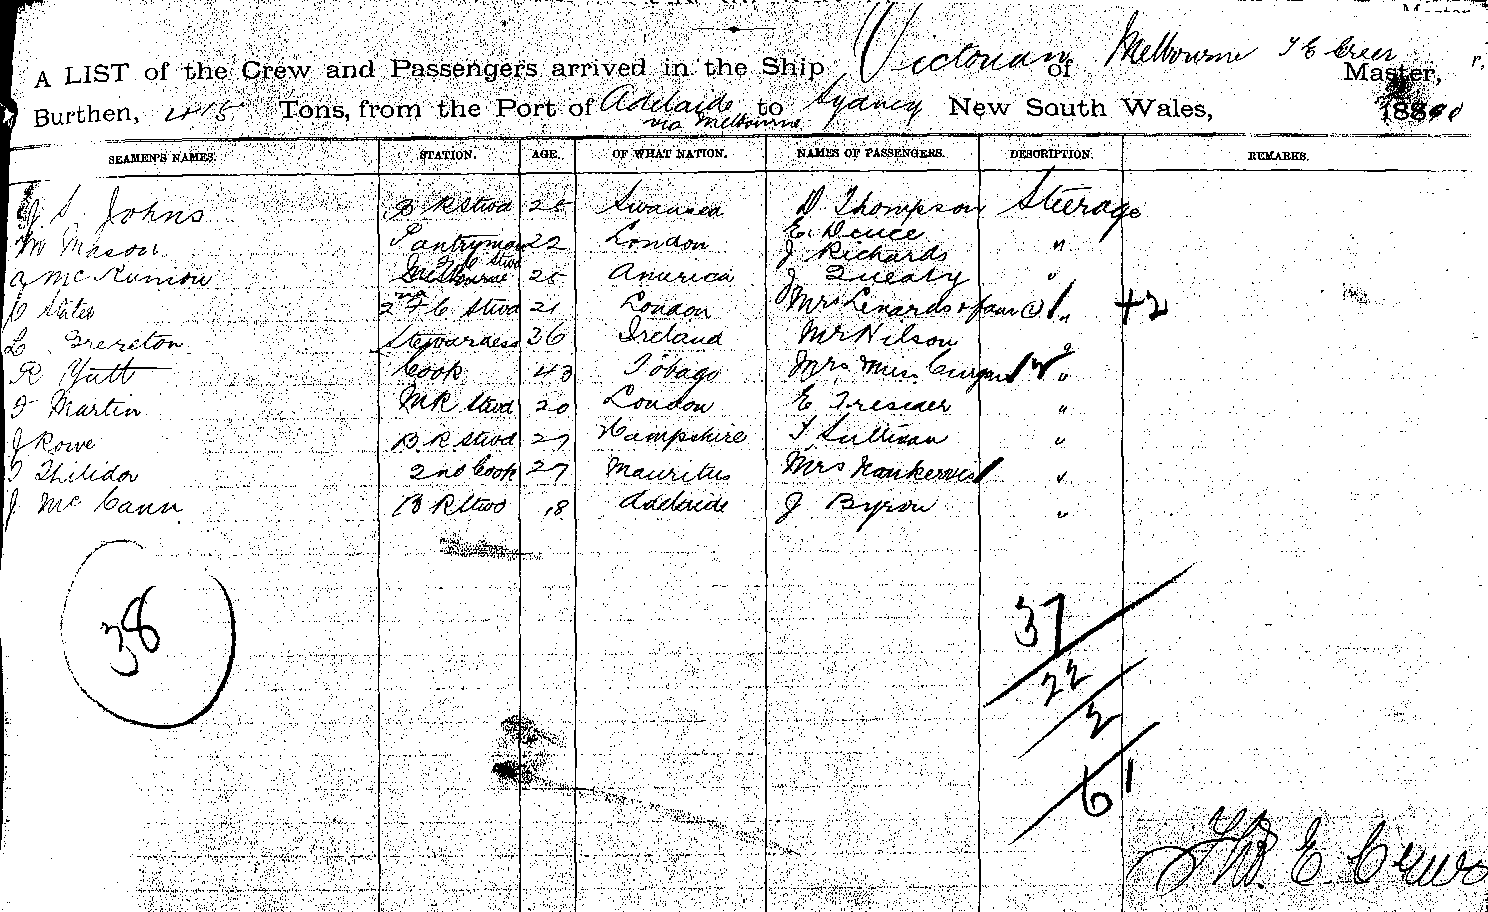 A LIST of the Crew and Passengers arrived in the Ship Victorian of Melbourne T E Creer Master,
Burthen, 415 Tons, from the Port of Adelaide via Melbourne to Sydney New South Wales, 188
SEAMEN'S NAMES. STATION. AGE. OF WHAT NATION. NAMES OF PASSENGERS. DESCRIPTION. REMARKS.
J S. Johns B R Stwd 25 Swansea D Thompson Steerage
M Mason Pantryman 22 London E. Deuce "
J Richards
A McKinnon 25 America J "
States 2nd F C Stwd 21 London Mrs Lenards + fam 1 " +2
L Brereton Stewardess 36 Ireland Mr Nilson
R Yutt Cook 43 Tobago Mrs Miss "
F Martin MR Stwd 20 London E Tresider "
J Rowe B. R Stwd 27 Hampshire T Sullivan "
2nd Cook 27 Mauritus Mrs Nankervis "
J McCann B R Stwd 18 Adelaide J Byron "
38
37
22
2
61
Thos. E. Creer